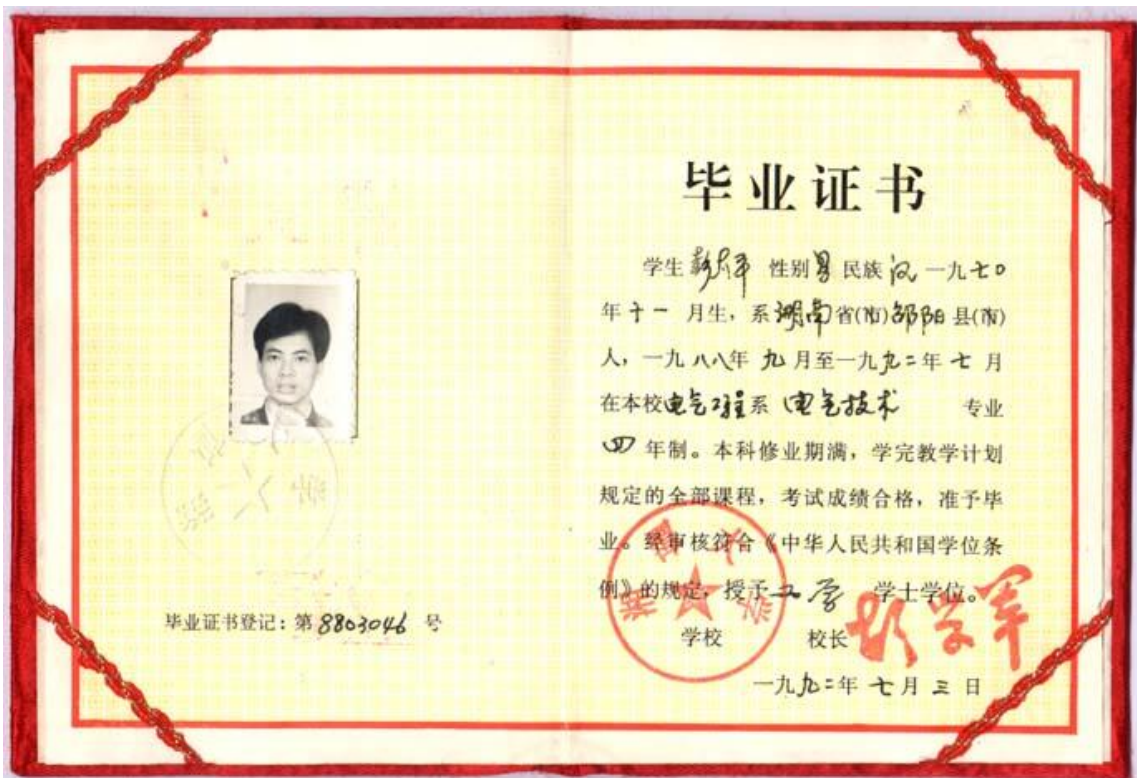 毕业证书
学生 彭 平 性别 男 民族 汉 一九七〇
年十一月生，系湖南省(市)邵阳县(市)
人，一九八八年九月至一九九二年七月
在本校电气工程系 电气技术 专业
四年制。本科修业期满，学完教学计划
规定的全部课程，考试成绩合格，准予毕
业。经审核符合《中华人民共和国学位条
例》的规定，授予工学 学士学位。
学校 校长
一九九二年七月三日
毕业证书登记：第8803046号